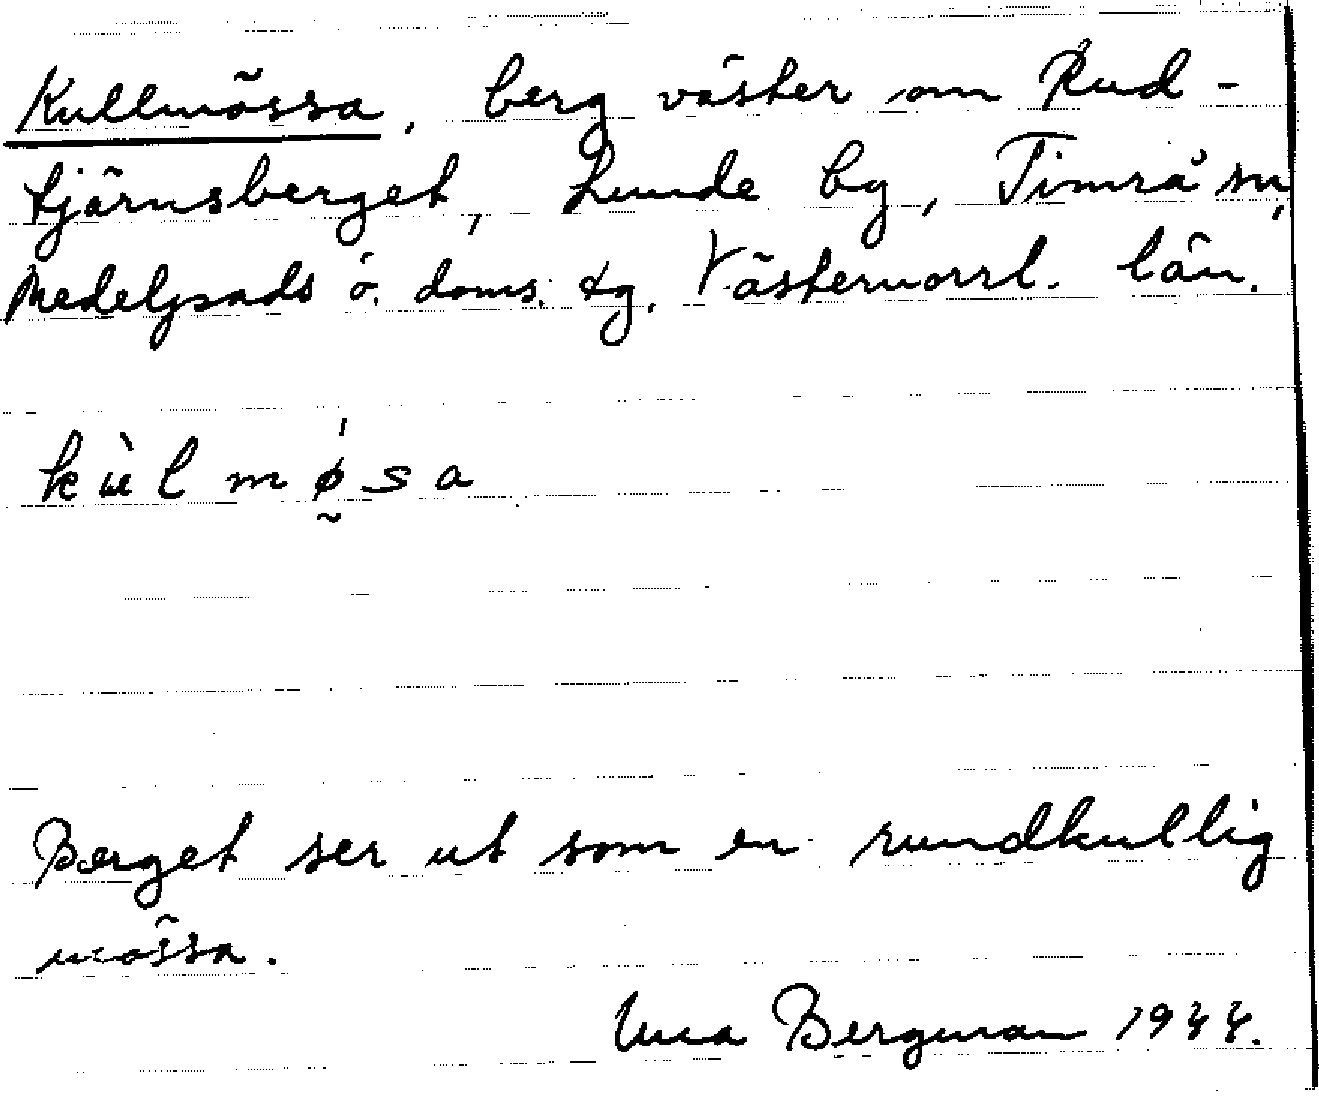 Kullmössa, berg väster om Rud-
tjärnsberget, Lunde by, Timrå sn,
Medelpads ö. doms. tg. Västernorrl. län.
kùlmǿ̰sa
Berget ser ut som en rundkullig
mössa.
Una Bergman 1944.